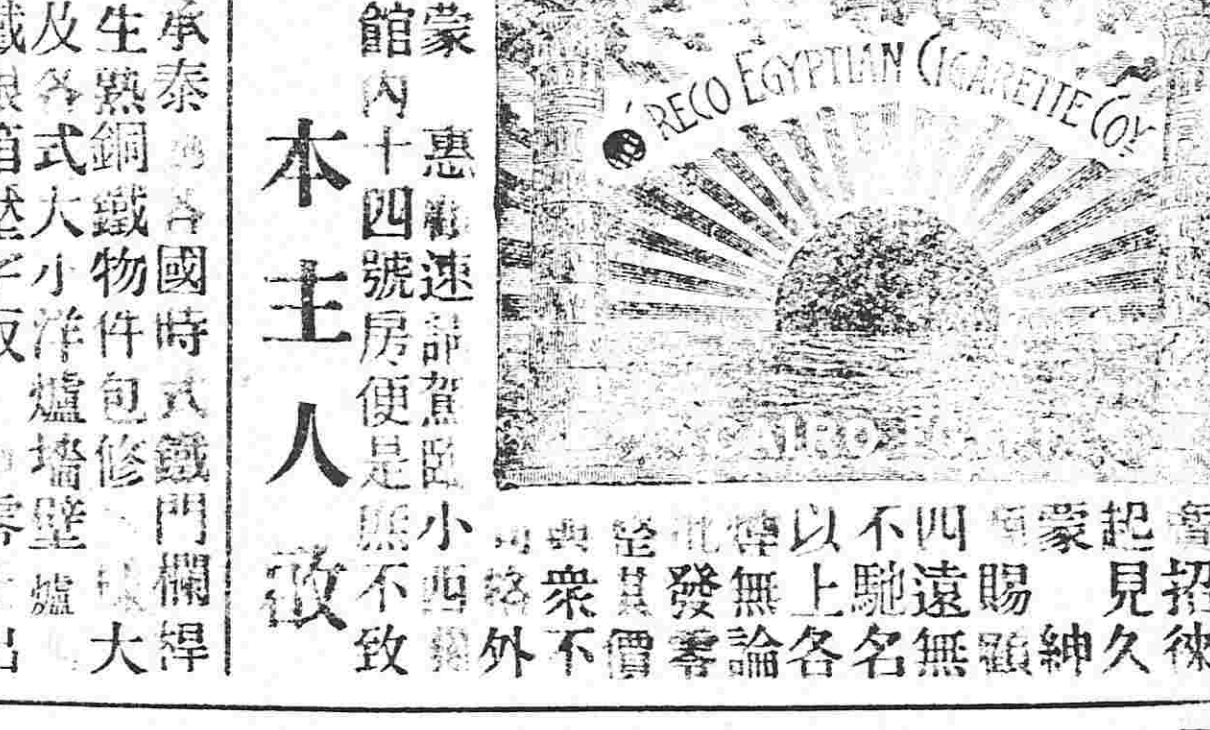 RECO EGYPTIAN CIGARETTE COY
招徠
起見久
蒙 紳
賜顧
四遠無
不馳名
以上各
煙無論
發零
其價
衆不
格外
蒙 惠顧速請駕臨小西
館內十四號房便是庶不致
本主人啟
承泰 各國時式鐵門欄桿
生熟銅鐵物件包修 大
及各式大小洋爐墻壁爐